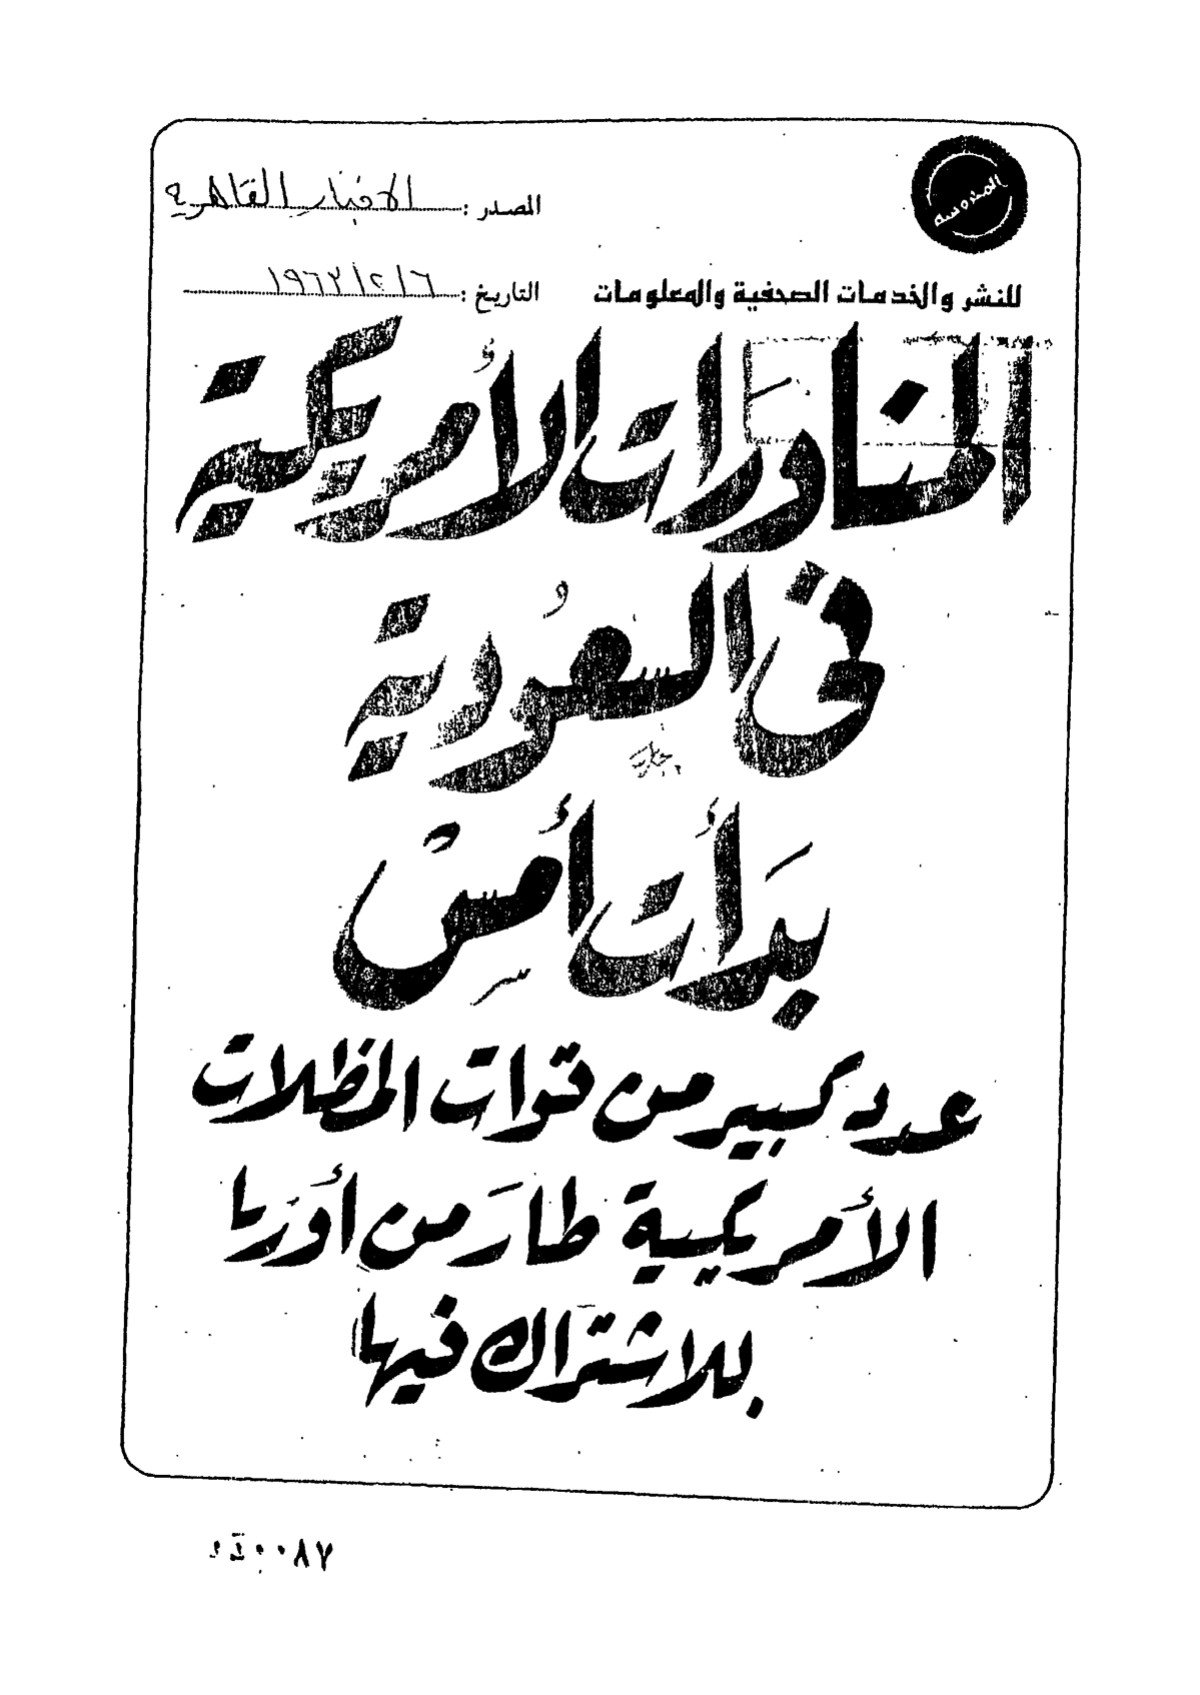 المحروسة
المصدر : الاخبار القاهرية
للنشر والخدمات الصحفية والمعلومات
التاريخ : ١٩٦٣/٢/٦
المناورات الأمريكية
فى السعودية
بدأت أمس
عدد كبير من قوات المظلات
الأمريكية طار من أوربا
للاشتراك فيها